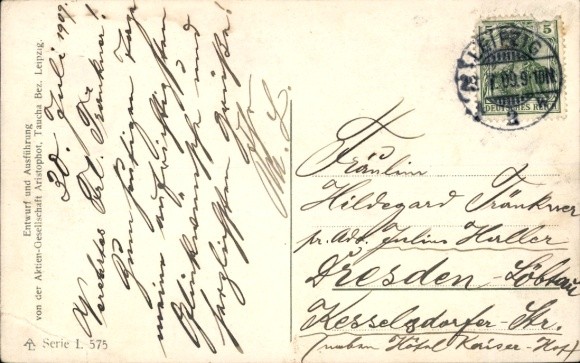 Entwurf und Ausführung
von der Aktien-Gesellschaft Aristophot, Taucha Bez. Leipzig.
Serie I. 575
20. Juli 1909.
Verehrtes Frl. Tränkner!
Zum heutigen Tage
meine aufrichtigsten
Glückwünsche und
herzlichsten Grüße!
5
DEUTSCHES REICH
LEIPZIG
Fräulein
Hildegard Tränkner
pr. Adr. Julius Haller
Dresden-Löbtau
Kesselsdorfer-Str.
(neben Hôtel Kaiser-Hof)